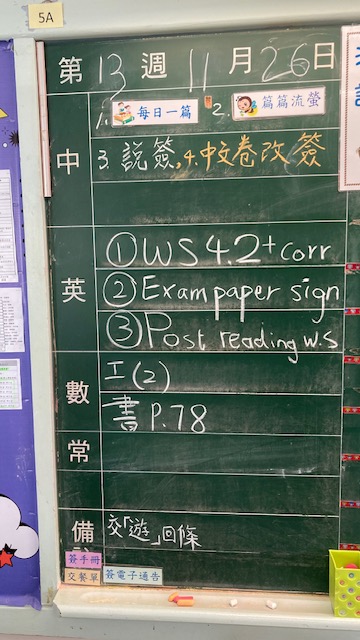 5A
第13週 11月26日
中
1. 每日一篇 2. 篇篇流螢
3. 說簽, 4. 中文卷改 簽
英
① WS 4.2 + corr
② Exam paper sign
③ Post reading w.s
數
工(2)
書 P.78
常
備
交「遊」回條
簽手冊
交餐單 簽電子通告